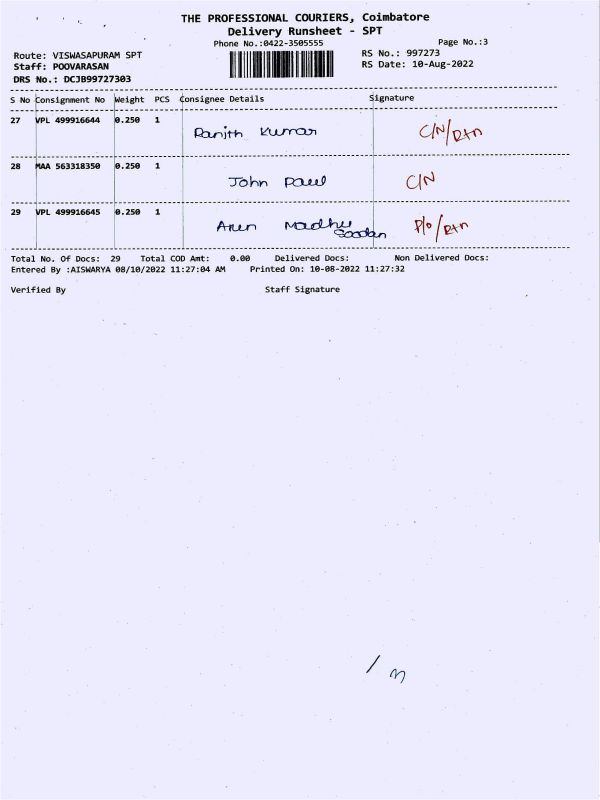 THE PROFESSIONAL COURIERS, Coimbatore
Delivery Runsheet - SPT
Phone No.:0422-3505555 Page No.:3
Route: VISWASAPURAM SPT RS No.: 997273
Staff: POOVARASAN RS Date: 10-Aug-2022
DRS No.: DCJB99727303
S No Consignment No Weight PCS Consignee Details Signature
27 VPL 499916644 0.250 1
Ranjith Kumar C/N/Rtn
28 MAA 563318350 0.250 1
John Paul C/N
29 VPL 499916645 0.250 1
Arun Madhu P/o/Rtn
Total No. Of Docs: 29 Total COD Amt: 0.00 Delivered Docs: Non Delivered Docs:
Entered By :AISWARYA 08/10/2022 11:27:04 AM Printed On: 10-08-2022 11:27:32
Verified By Staff Signature